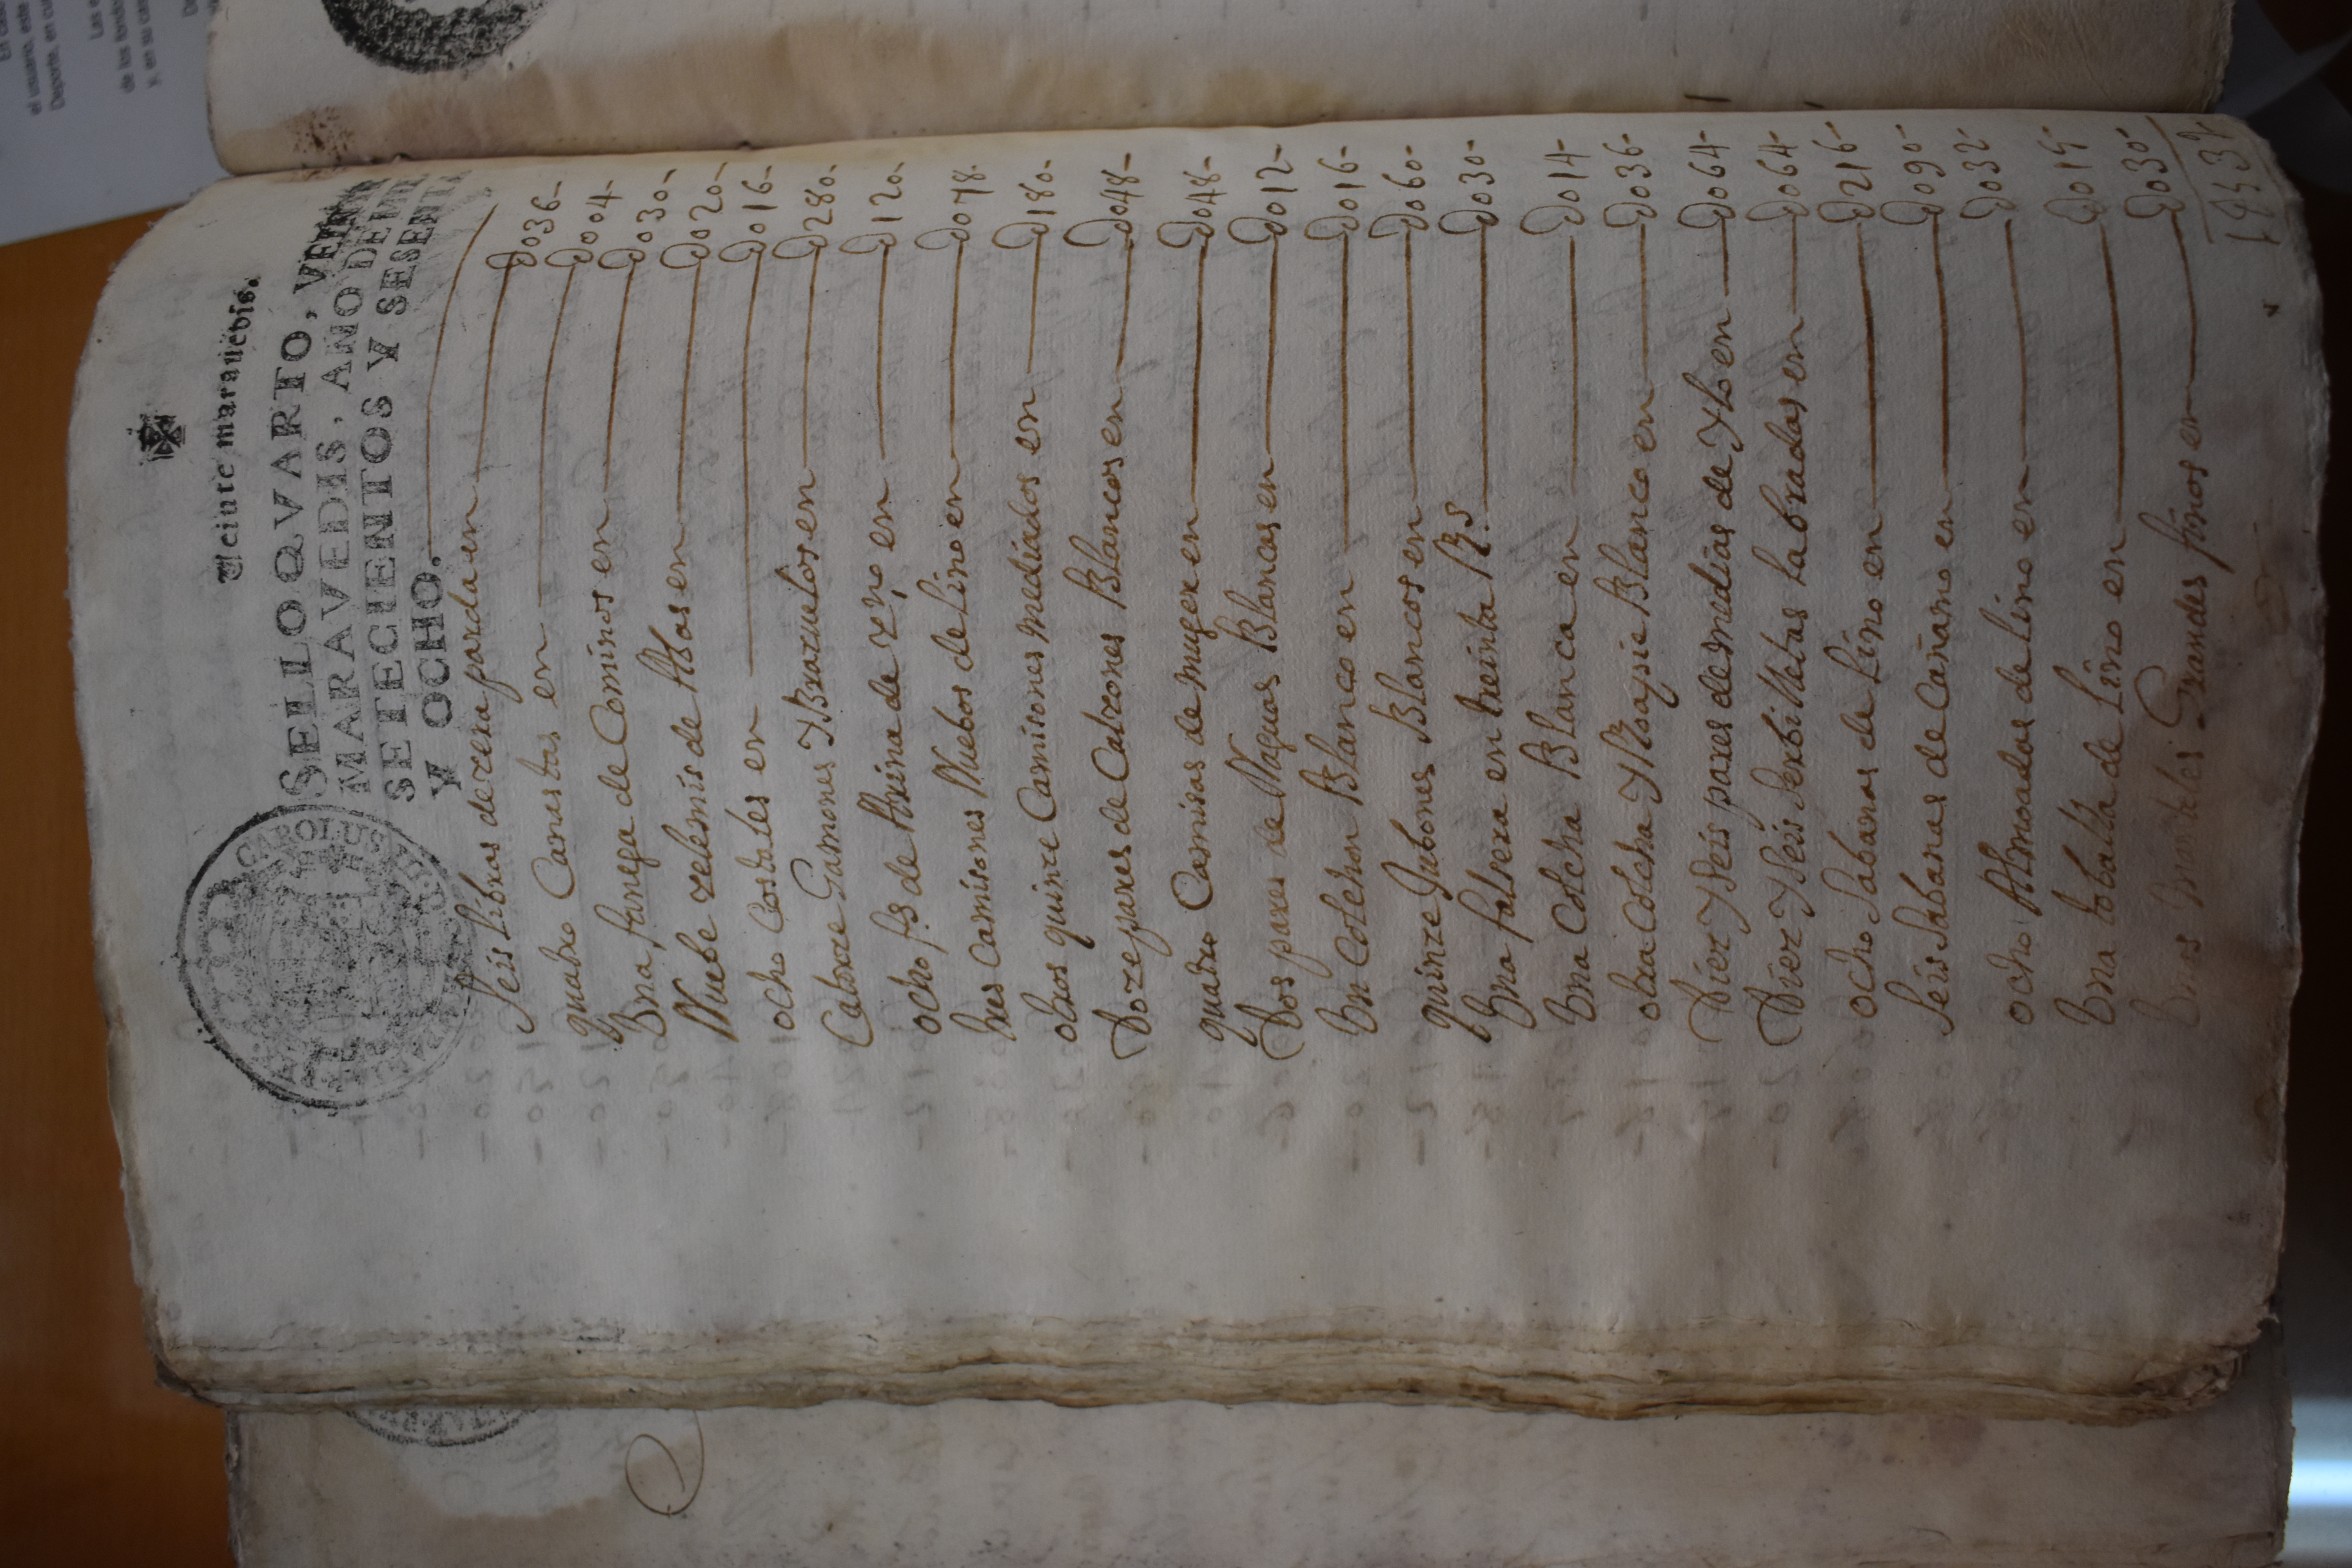 Ueinte marauedis.
SELLO QVARTO, VEINTE
MARAVEDIS, AÑO DE MIL
SETECIENTOS Y SESENTA
Y OCHO.
CAROLUS
Seis libras de zera parda en U036-
quatro Canastas en U004-
Una fanega de Cominos en U030-
Nuebe zelemis de Abas en U020-
ocho Costales en U016-
Catorze Gamones Y Brazuelos en U280-
ocho fs de Arina de en U120-
tres Camisones Nuebos de Lino en U078-
otros quinze Camisones mediados en U180-
Doze pares de Calzones Blancos en U048-
quatro Camisas de muger en U048-
Dos pares de Naguas Blancas en U012-
Un Colchon Blanco en U016-
quinze Jubones Blancos en U060-
Una falsera en treinta Rs U030-
Una Colcha Blanca en U014-
otra Colcha Y Rodapie Blanco en U036-
Diez Y Seis pares de medias de Ylo en U064-
Diez Y Seis Serbilletas labradas en U064-
ocho Sabanas de Lino en U216-
Seis Sabanas de Cañamo en U090-
ocho Almoadas de Lino en U032-
Una toballa de Lino en U015-
Unos Manteles Grandes finos en U030-
1U539